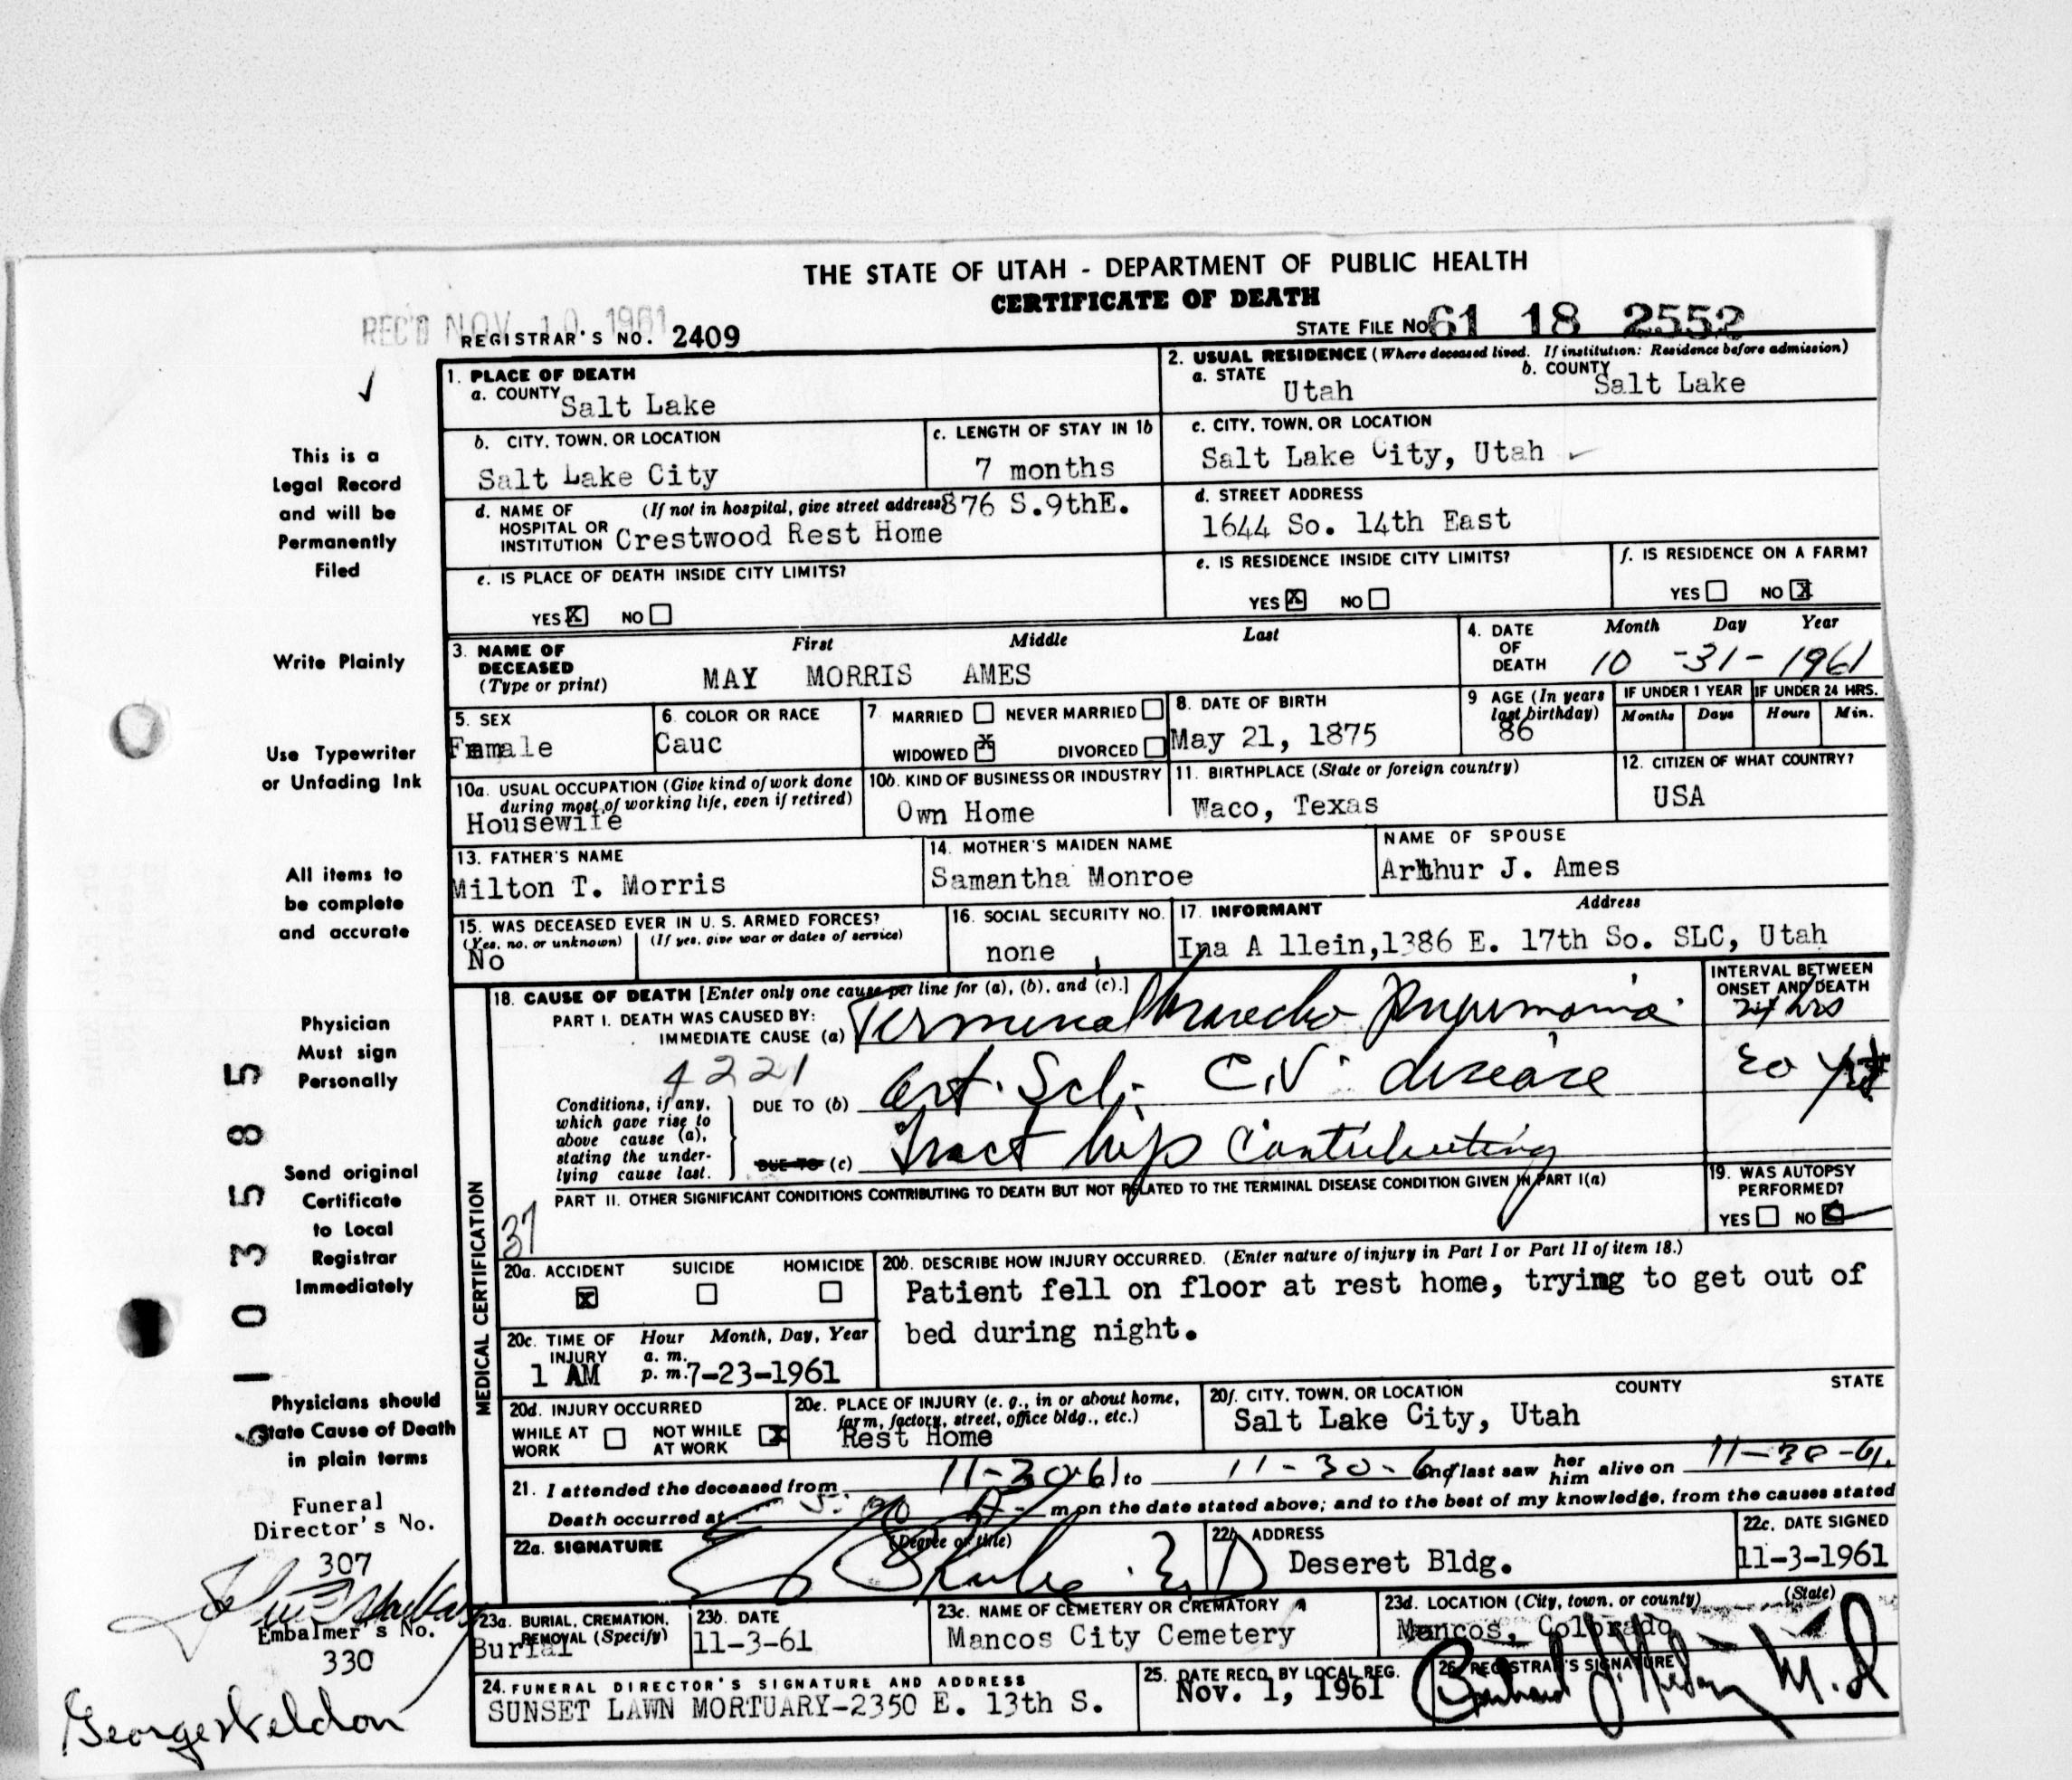 THE STATE OF UTAH - DEPARTMENT OF PUBLIC HEALTH
CERTIFICATE OF DEATH
REC'D NOV 10 1961
REGISTRAR'S NO. 2409
STATE FILE NO. 61 18 2552
1. PLACE OF DEATH
a. COUNTY Salt Lake
2. USUAL RESIDENCE (Where deceased lived. If institution: Residence before admission)
a. STATE Utah b. COUNTY Salt Lake
b. CITY, TOWN, OR LOCATION Salt Lake City
c. LENGTH OF STAY IN 1b 7 months
c. CITY, TOWN, OR LOCATION
Salt Lake City, Utah
d. NAME OF HOSPITAL OR INSTITUTION (If not in hospital, give street address) 876 S.9thE.
Crestwood Rest Home
d. STREET ADDRESS
1644 So. 14th East
e. IS PLACE OF DEATH INSIDE CITY LIMITS?
YES X NO
e. IS RESIDENCE INSIDE CITY LIMITS?
YES X NO
f. IS RESIDENCE ON A FARM?
YES NO X
3. NAME OF DECEASED (Type or print)
First Middle Last
MAY MORRIS AMES
4. DATE OF DEATH Month Day Year
10 -31- 1961
5. SEX
Female
6. COLOR OR RACE
Cauc
7. MARRIED NEVER MARRIED
WIDOWED X DIVORCED
8. DATE OF BIRTH
May 21, 1875
9 AGE (In years last birthday)
86
IF UNDER 1 YEAR Months Days
IF UNDER 24 HRS. Hours Min.
10a. USUAL OCCUPATION (Give kind of work done during most of working life, even if retired)
Housewife
10b. KIND OF BUSINESS OR INDUSTRY
Own Home
11. BIRTHPLACE (State or foreign country)
Waco, Texas
12. CITIZEN OF WHAT COUNTRY?
USA
13. FATHER'S NAME
Milton T. Morris
14. MOTHER'S MAIDEN NAME
Samantha Monroe
NAME OF SPOUSE
Arthur J. Ames
15. WAS DECEASED EVER IN U. S. ARMED FORCES?
(Yes, no, or unknown) (If yes, give war or dates of service)
No
16. SOCIAL SECURITY NO.
none
17. INFORMANT Address
Ina A llein,1386 E. 17th So. SLC, Utah
18. CAUSE OF DEATH [Enter only one cause per line for (a), (b), and (c).]
INTERVAL BETWEEN ONSET AND DEATH
PART I. DEATH WAS CAUSED BY:
IMMEDIATE CAUSE (a) Terminal Broncho Pneumonia 24 hrs
4221
Conditions, if any, which gave rise to above cause (a), stating the underlying cause last.
DUE TO (b) Art. Scl. C.V. disease 20 yrs
DUE TO (c) Fract hip contributing
PART II. OTHER SIGNIFICANT CONDITIONS CONTRIBUTING TO DEATH BUT NOT RELATED TO THE TERMINAL DISEASE CONDITION GIVEN IN PART I(a)
37
19. WAS AUTOPSY PERFORMED?
YES NO
MEDICAL CERTIFICATION
20a. ACCIDENT X SUICIDE HOMICIDE
20b. DESCRIBE HOW INJURY OCCURRED. (Enter nature of injury in Part I or Part II of item 18.)
Patient fell on floor at rest home, trying to get out of
bed during night.
20c. TIME OF INJURY Hour Month, Day, Year
a. m.
p. m.
1 AM 7-23-1961
20d. INJURY OCCURRED
WHILE AT WORK NOT WHILE AT WORK X
20e. PLACE OF INJURY (e. g., in or about home, farm, factory, street, office bldg., etc.)
Rest Home
20f. CITY, TOWN, OR LOCATION COUNTY STATE
Salt Lake City, Utah
21. I attended the deceased from 11-30-61 to 11-30-61 and last saw her him alive on 11-30-61.
Death occurred at m on the date stated above; and to the best of my knowledge, from the causes stated
22a. SIGNATURE (Degree or title)
22b. ADDRESS
Deseret Bldg.
22c. DATE SIGNED
11-3-1961
23a. BURIAL, CREMATION, REMOVAL (Specify)
Burial
23b. DATE
11-3-61
23c. NAME OF CEMETERY OR CREMATORY
Mancos City Cemetery
23d. LOCATION (City, town, or county) (State)
Mancos, Colorado
24. FUNERAL DIRECTOR'S SIGNATURE AND ADDRESS
SUNSET LAWN MORTUARY-2350 E. 13th S.
25. DATE RECD. BY LOCAL REG.
Nov. 1, 1961
26. REGISTRAR'S SIGNATURE
M.D
This is a
Legal Record
and will be
Permanently
Filed
Write Plainly
Use Typewriter
or Unfading Ink
All items to
be complete
and accurate
Physician
Must sign
Personally
Send original
Certificate
to Local
Registrar
Immediately
Physicians should
State Cause of Death
in plain terms
6103585
Funeral
Director's No.
307
Embalmer's No.
330
George Weldon